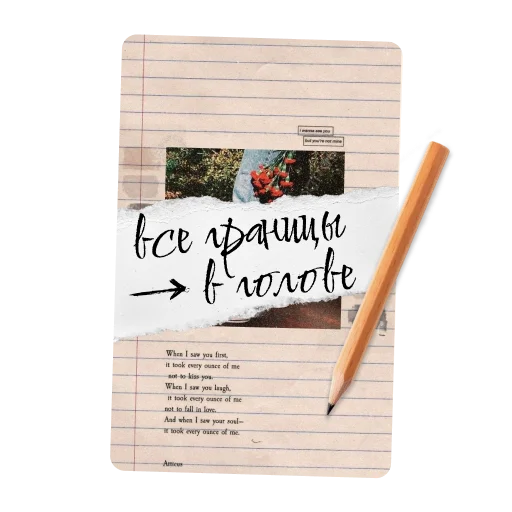 I wanna see you
but you're not mine
все границы
→ в голове
When I saw you first,
it took every ounce of me
not to kiss you.
When I saw you laugh,
it took every ounce of me
not to fall in love.
And when I saw your soul—
it took every ounce of me.
Atticus